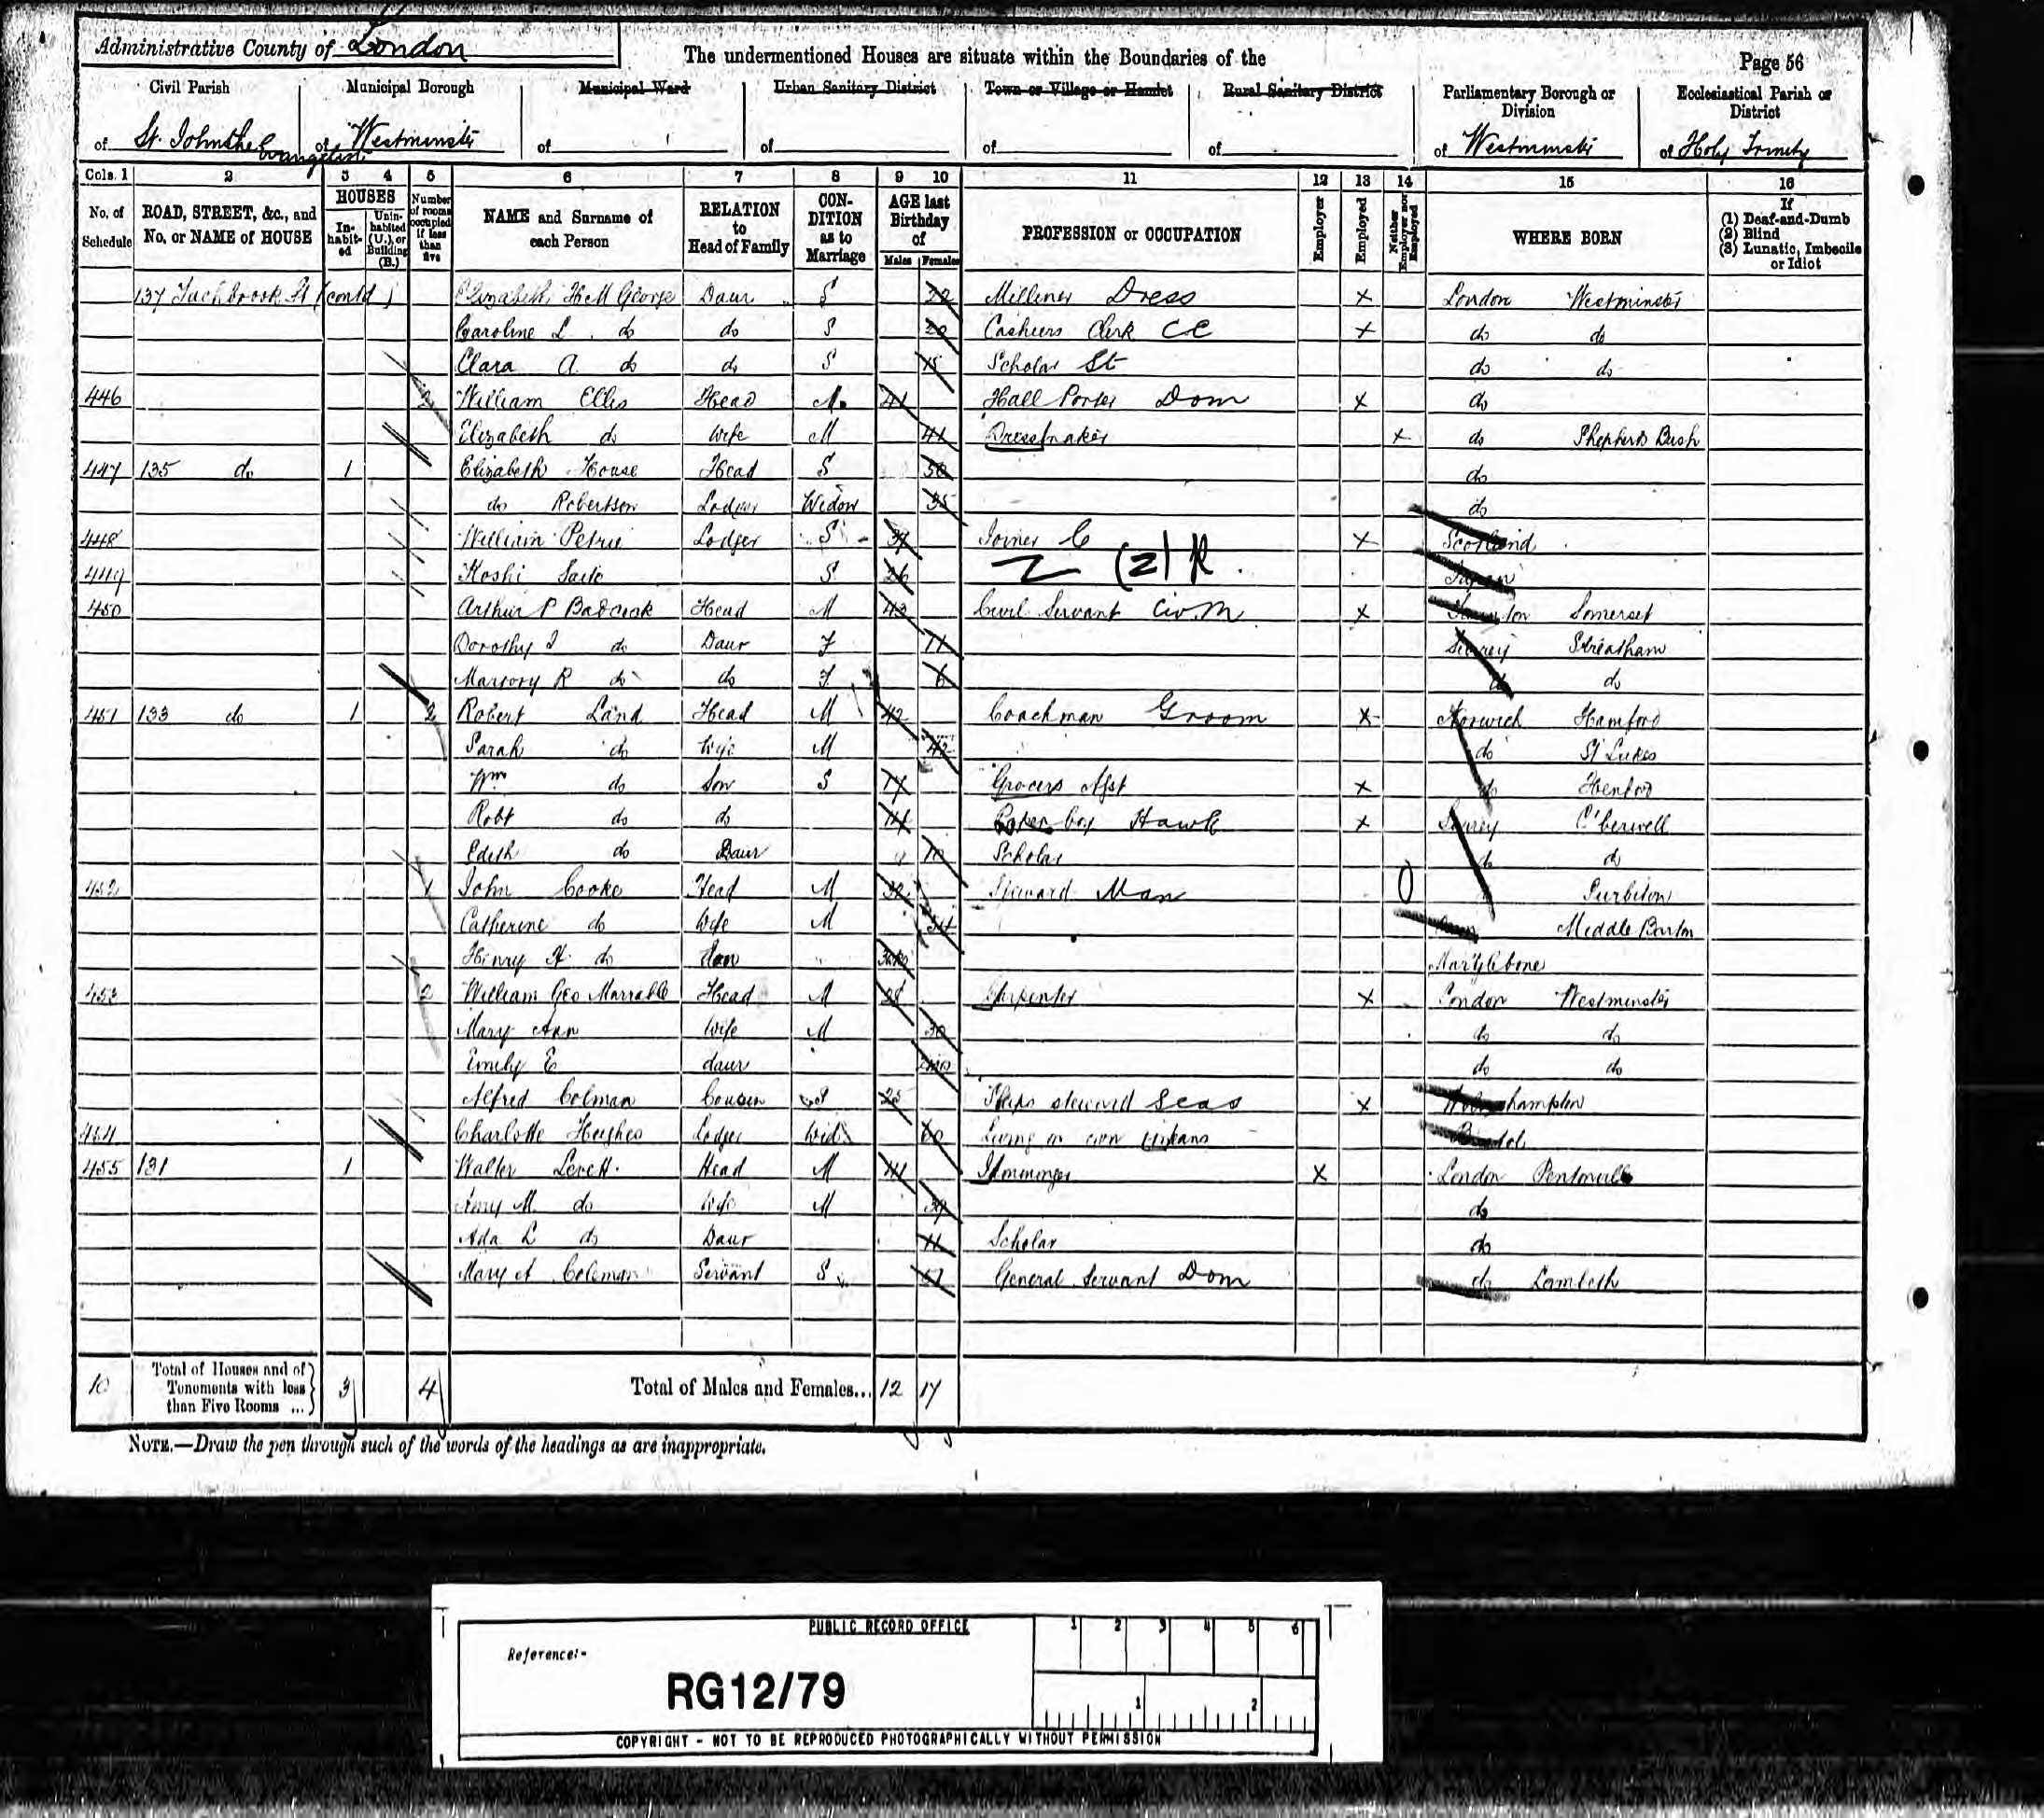 Administrative County of London
The undermentioned Houses are situate within the Boundaries of the
Page 56
Civil Parish of St. John the Evangelist
Municipal Borough of Westminster
Municipal Ward of
Urban Sanitary District of
Town or Village or Hamlet of
Rural Sanitary District of
Parliamentary Borough or Division of Westminster
Ecclesiastical Parish or District of Holy Trinity
Cols. 1 2 3 4 5 6 7 8 9 10 11 12 13 14 15 16
No. of Schedule
ROAD, STREET, &c., and No. or NAME of HOUSE
HOUSES
In-habit-ed
Unin-habited (U.), or Building (B.)
Number of rooms occupied if less than five
NAME and Surname of each Person
RELATION to Head of Family
CON-DITION as to Marriage
AGE last Birthday of
Males Females
PROFESSION or OCCUPATION
Employer
Employed
Neither Employer nor Employed
WHERE BORN
If (1) Deaf-and-Dumb (2) Blind (3) Lunatic, Imbecile or Idiot
137 Tachbrook St (contd) Elizabeth H M George Daur S 22 Milliner Dress X London Westminster
Caroline L. do do S 20 Cashiers Clerk CC X do do
Clara A. do do S 15 Scholar St do do
446 2 William Ellis Head M 41 Hall Porter Dom X do
Elizabeth do Wife M 41 Dressmaker X do Shepherds Bush
447 135 do 1 Elizabeth House Head S 50 do
do Robertson Lodger Widow 35 do
448 William Petrie Lodger S Joiner C X Scotland
449 Koshi Saito S 26 Z (2) R. Japan
450 Arthur P Badcock Head M 43 Civil Servant Civ M X Somerset
Dorothy I do Daur 11 Surrey Streatham
Marjory R do do 6 do do
451 133 do 1 2 Robert Land Head M 42 Coachman Groom X Norwich
Sarah do Wife M 42 do St Lukes
Wm do Son S 17 Grocers Asst X do
Robt do do 14 boy Hawk X Surrey C'berwell
Edith do Daur 10 Scholar do do
452 1 John Cooke Head M Steward Man Surbiton
Catherine do Wife M 34 Middle Barton
Henry H. do Son Marylebone
453 2 William Geo Marrable Head M 28 Carpenter X London Westminster
Mary Ann Wife M 30 do do
Emily E daur do do
Alfred Colman Cousin S 25 Ships steward Seas X Wolverhampton
454 Charlotte Hughes Lodger Wid 60 Living on own means Bristol
455 131 1 Walter Levett Head M 41 Ironmonger X London Pentonville
Amy M. do Wife M 39 do
Ada L do Daur 11 Scholar do
Mary A Coleman Servant S General Servant Dom do Lambeth
10 Total of Houses and of Tenements with less than Five Rooms ... 3 4 Total of Males and Females... 12 17
NOTE.—Draw the pen through such of the words of the headings as are inappropriate.
PUBLIC RECORD OFFICE
1 2 3 4 5 6
Reference:-
RG12/79
1 2
COPYRIGHT - NOT TO BE REPRODUCED PHOTOGRAPHICALLY WITHOUT PERMISSION